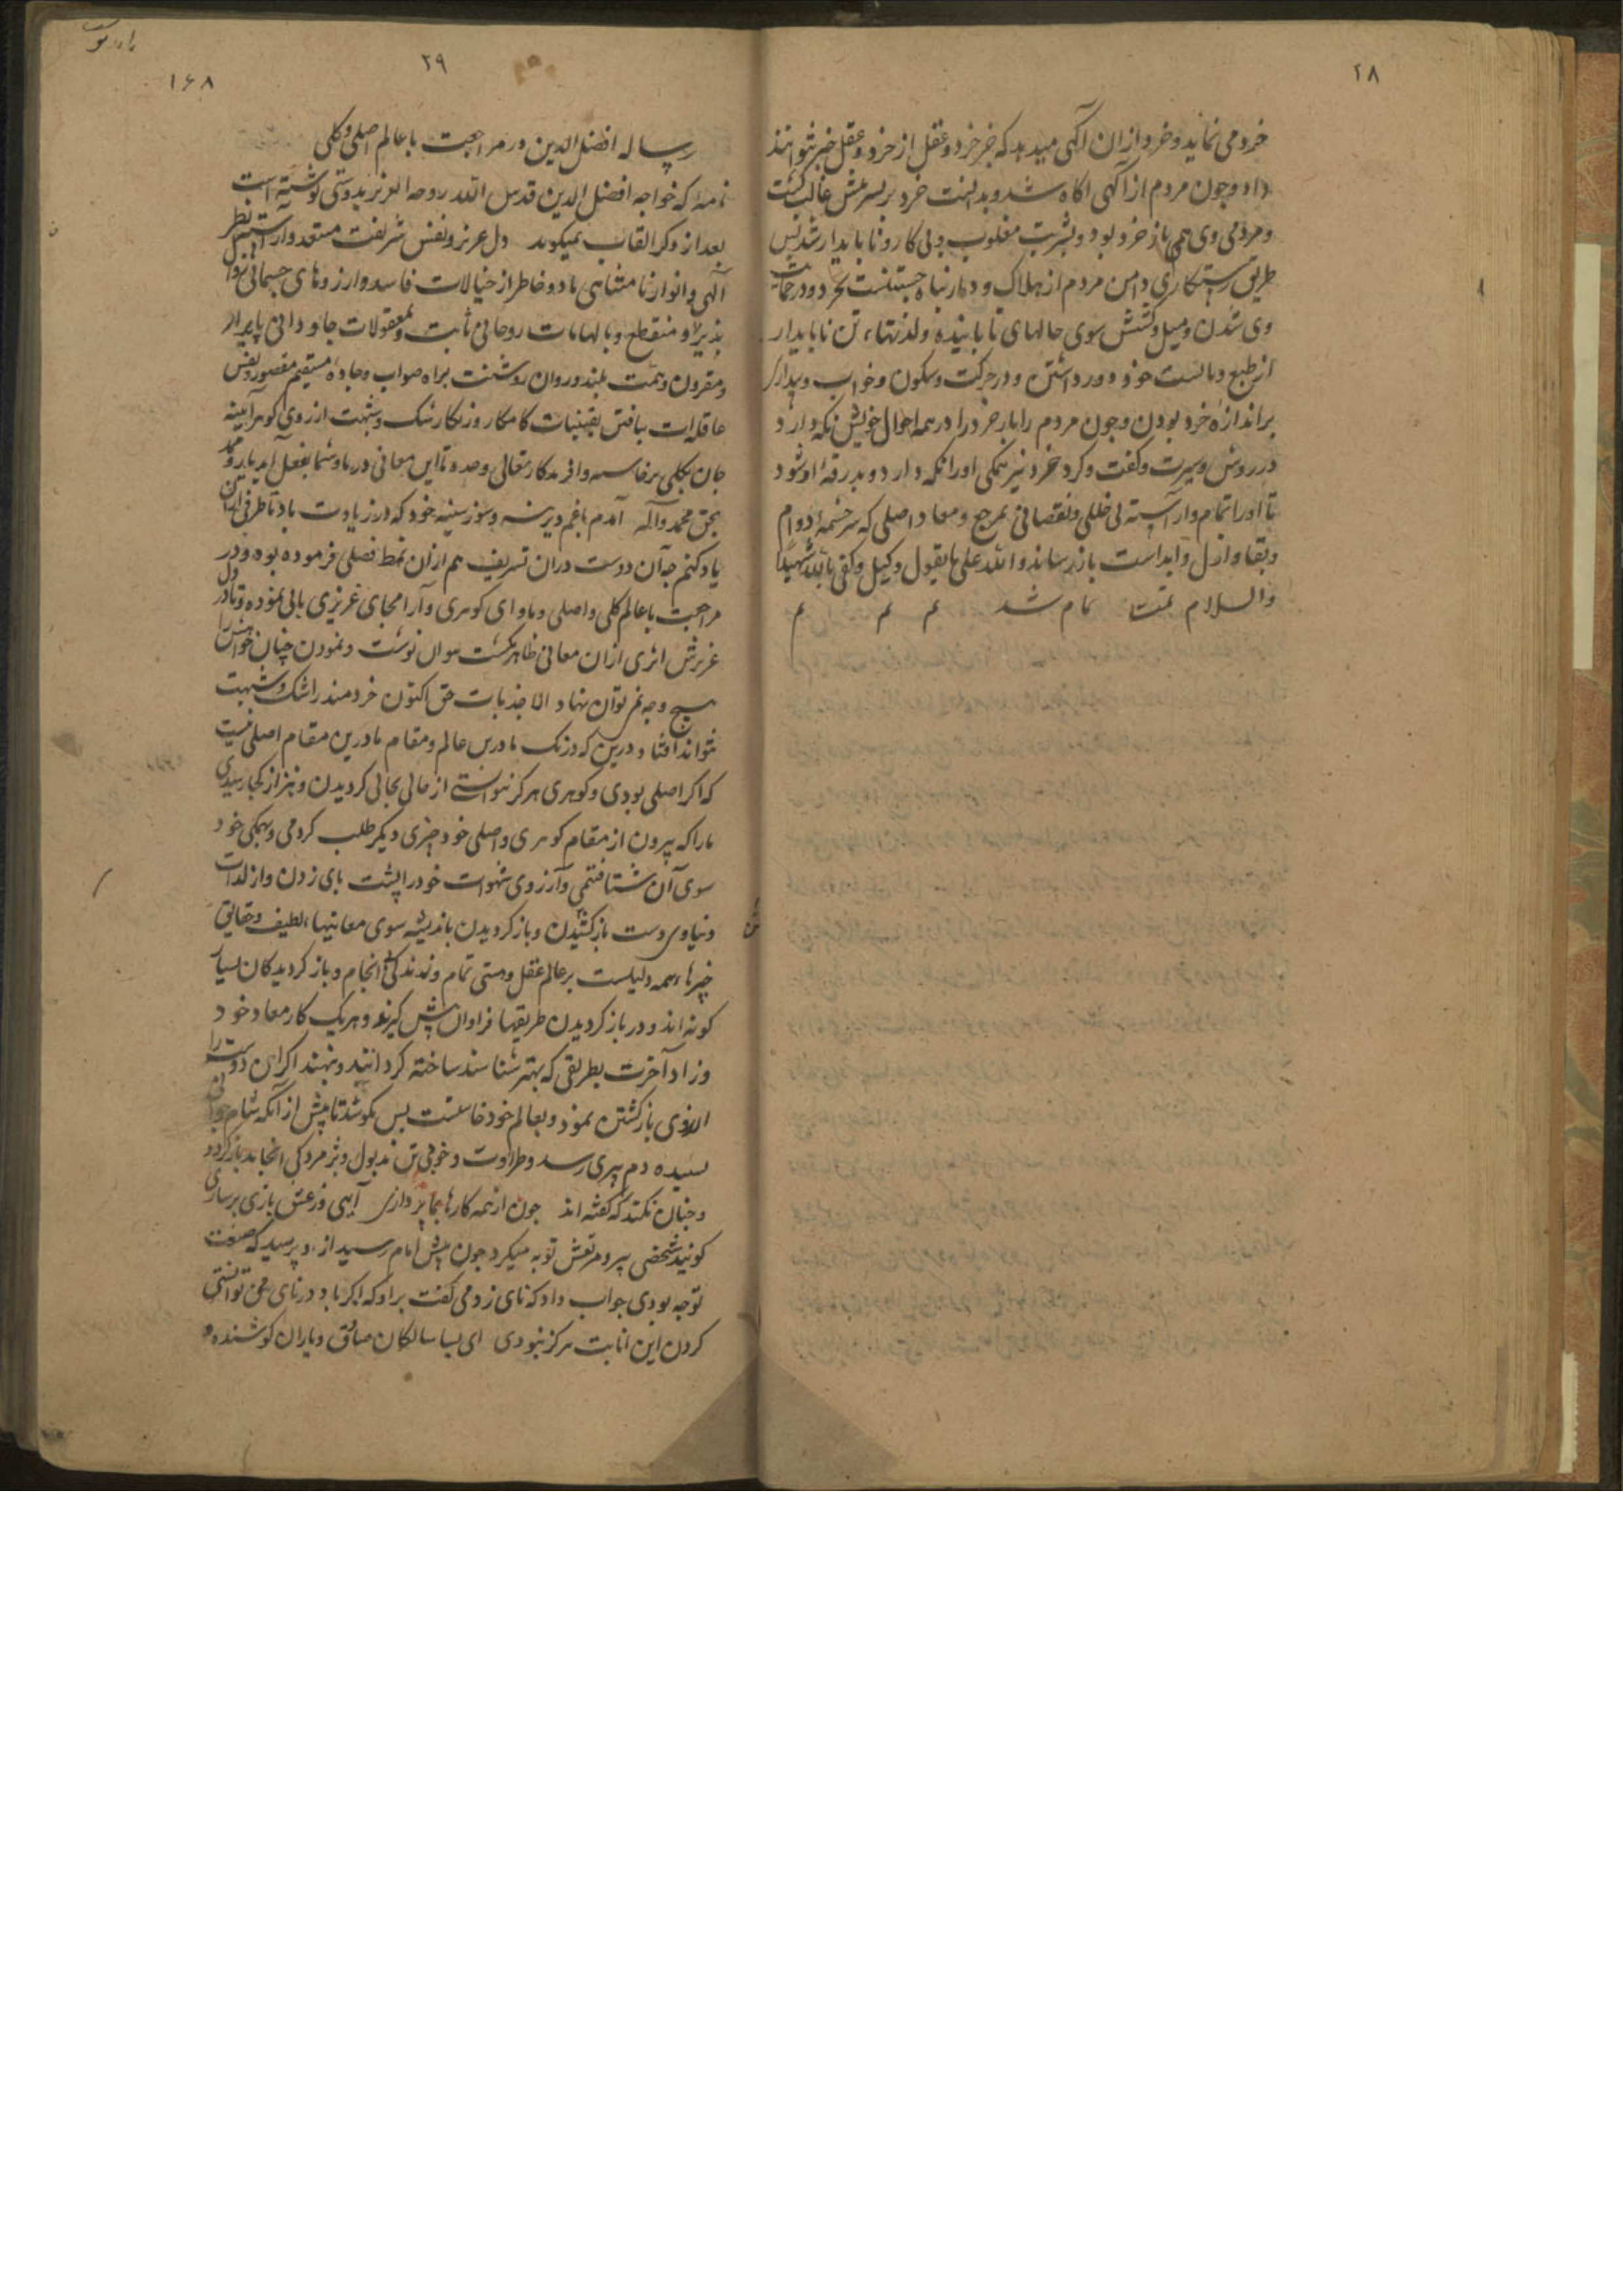 ۲۸
خرد می نماید و خرد از ان آگهی میدهد که جز خرد و عقل از خرد و عقل خبر نتوانند
داد و چون مردم از آگهی اگاه شد و بدانست خرد بر سرشتش غالب گشت
و مردمی وی همی باز خرد بود و بشریت مغلوب و بی کار و نا پایدار شد پس
طریق رستکاری و امن مردم از هلاک و دمار پناه جستنست بخرد و در حمایت
وی شدن و میل و کشش سوی حالهای نا پاینده و لذتهاء تن ناپایدار
از طبع و بالست خود دور داشتن و در حرکت و سکون و خواب و بیداری
بر اندازه خرد بودن و چون مردم را یار خرد را در همه احوال خویش نکه دارد
در روش و سیرت و گفت و کرد خرد نیز همکی او را نکه دارد و بدرقهٔ او شود
تا او را تمام و آراسته بی خللی و نقصانی بمرجع و معاد اصلی که سرچشمهٔ دوام
و بقا و ازل و ابد است باز رساند و الله علی ما یقول وکیل و کفی بالله شهیدا
والسلام تمت تمام شد م م م
۲۹
۱۶۸
رساله افضل الدین در مراجعت با عالم اصلی و کلی
نامهٔ که خواجه افضل الدین قدس الله روحه العزیز بدوستی نوشته است
بعد از ذکر القاب میکوید دل عزیز و نفس شریفت مستعد و آراسته بنظر
آلهی و انوار نا متناهی باد و خاطر از خیالات فاسد و ارزوهای جسمانی
پذیر و منقطع و بالهامات روحانی ثابت و بمعقولات جاودانی پایدار
و مقرون و همت بلند و روان روشنت براه صواب و جاده مستقیم مقصور و نفس
عاقله ات بیافتن یقینیات کامکار و زنکار شک و شبهت از روی کوهر آیینه
جان بکلی برخاسته و آفریدکار تعالی و تا این معانی در ما و شما بفعل آید یار و
بحق محمد و آله آمدم با غم دیرینه و سوز سینه خود که در زیادت باد تا طرفی از ان
یاد کنم چه آن دوست دران تشریف هم از ان نمط فصلی فرموده بود و در
مراجعت با عالم کلی و اصلی و ماوای کوهری و آرامجای غریزی بابی نموده و تا در دل
عزیزش اثری از ان معانی ظاهر نکشت نتوان نوشت و نمودن چنان خواهش را
هیچ وجه نمی توان نهاد الا جذبات حق اکنون خردمند را شک و شبهت
نتواند افتاد درین که درنک ما درین عالم و مقام ما درین مقام اصلی نیست
که اکر اصلی بودی و کوهری هرکز نتوانستی از حالی بحالی کردیدن و نیز از کجا رسیدی
ما را که بیرون از مقام کوهری و اصلی خود چیزی دیکر طلب کردمی و بهمکی خود
سوی آن شتافتمی و آرزوی شهوات خود را پشت پای زدن و از لذات
دنیاوی دست بازکشیدن و باز کردیدن باندیشه سوی معانیهاء لطیف و حقایق
چیزهاء همه دلیلست بر عالم عقل و هستی تمام و زندکی انجام و باز کردیدکان بسیار
کونه اند و در باز کردیدن طریقها فراوان پیش کیرند و هر یک کار معاد خود
و زاد آخرت بطریقی که بهتر شناسند ساخته کردانند و بنهند اکر این دوست را
آرزوی بازکشتن نمود و بعالم خود خاست پس بکوشد تا پیش از آنکه شام جوانی
بسپیده دم پیری رسد و طراوت و خوبی تن بذبول و پژمردکی انجامد باز کردد
و چنان نکند که گفته اند چون از همه کارها بجا پردازی آیی و ز عشق بازی بر سازی
کویند شخصی پیر و مرتعش توبه میکرد چون پیش امام رسید از او پرسید که صنعت
تو چه بودی جواب داد که نای زدمی گفت برادر که اکر باد در نای می توانستی
کردن این انابت هرکز نبودی ای بسا سالکان صادق و یاران کوشنده